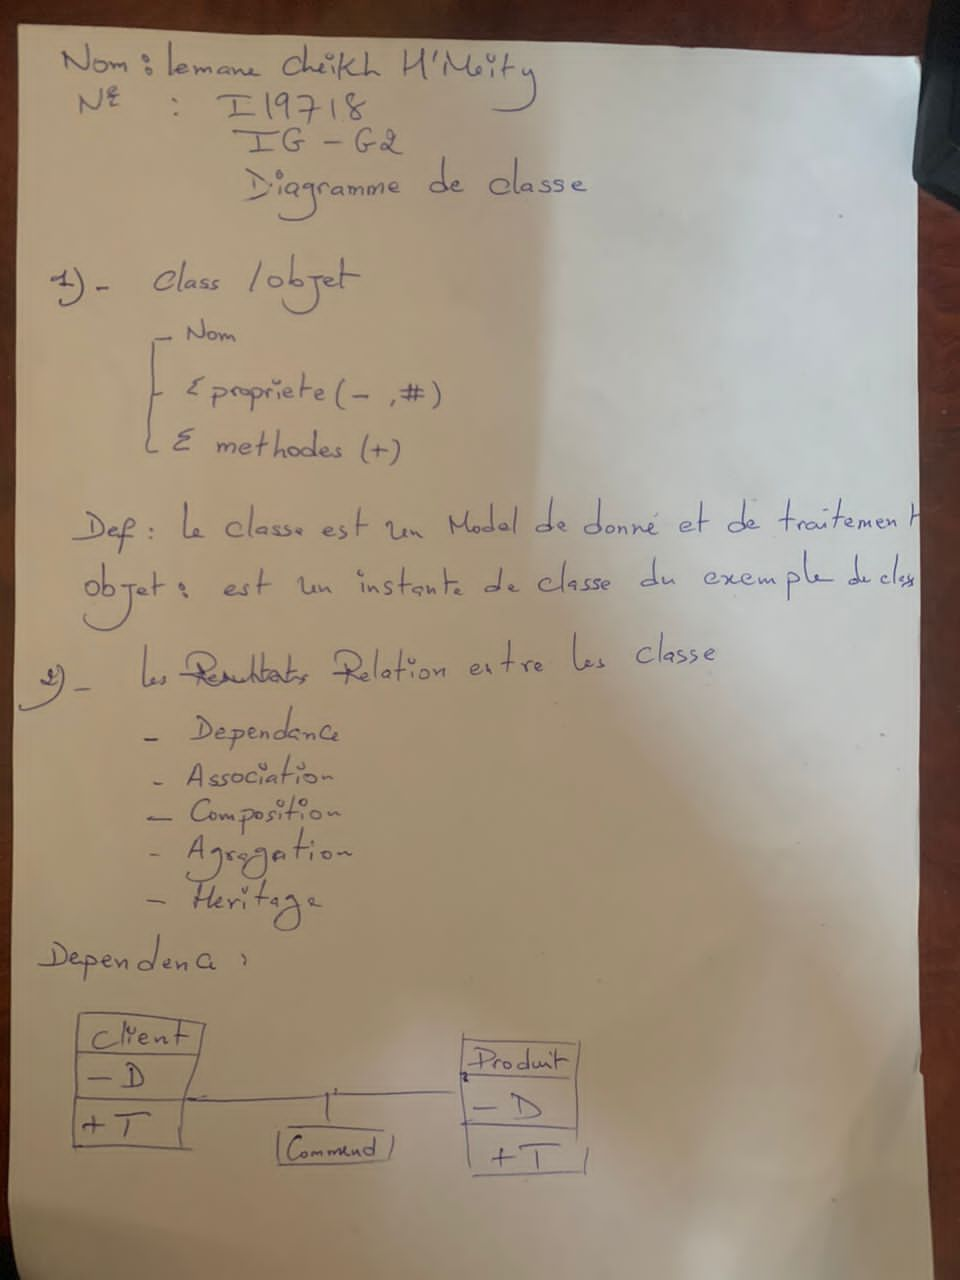 Nom : lemane cheikh H'Meity
Nº : I19718
IG - G2
Diagramme de classe
1)- Class / objet
- Nom
Σ propriete (- , #)
Σ methodes (+)
Def : le classe est un Model de donné et de traitement
objet : est un instante de classe du exemple de class
2)- les Resultats Relation entre les classe
- Dependance
- Association
- Composition
- Agregation
- Heritage
Dependence :
Client
- D
+ T
Commend
Produit
- D
+ T